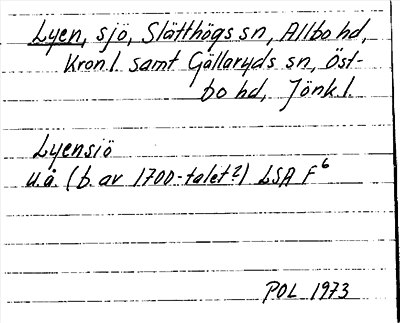 Lyen, sjö, Slätthögs sn, Allbo hd,
Kron.l. samt Gällaryds sn, Öst-
bo hd, Jönk.l.
Lyensiö
u.å. (b. av 1700-talet?) LSA F6
POL 1973